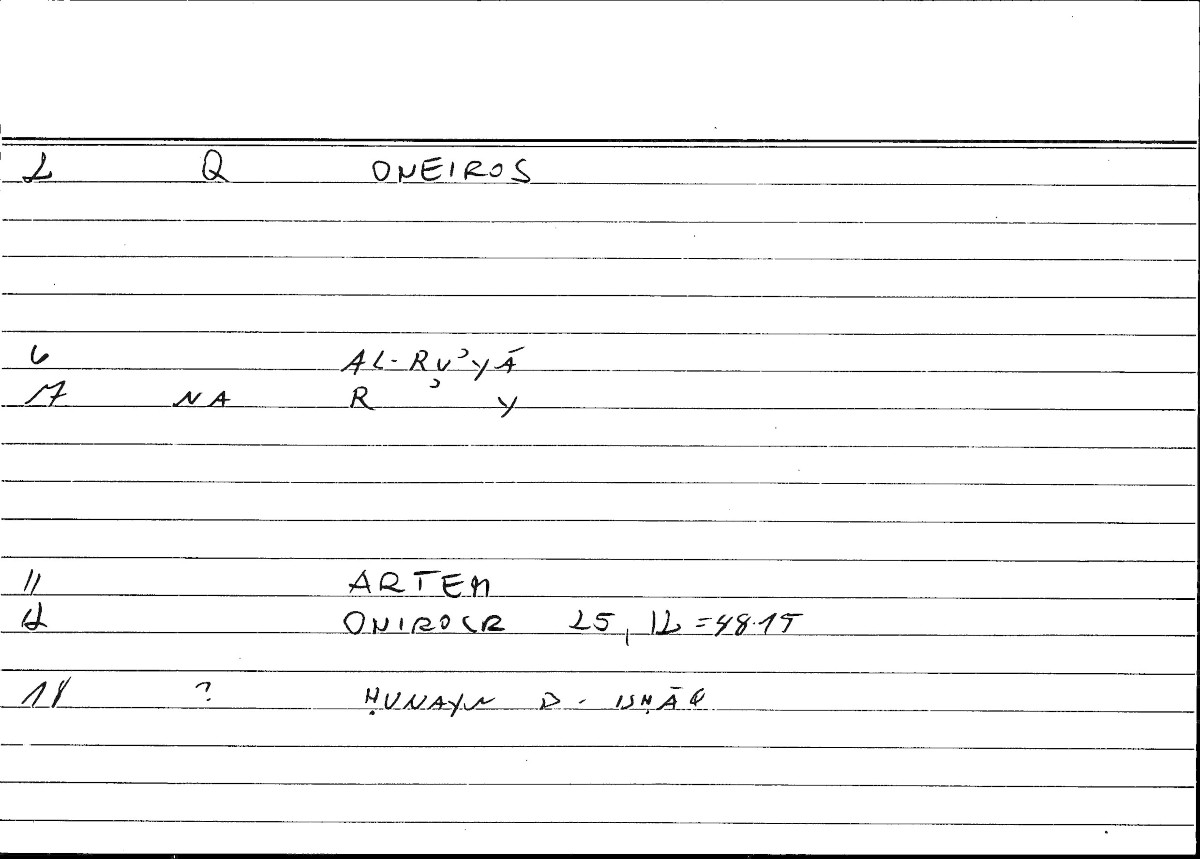 2 Q ONEIROS
6 AL-RUʾYĀ
17 NA R ʾ Y
11 ARTEM
12 ONIROCR 25, 12 = 48.15
18 ? ḤUNAYN B. ISḤĀQ